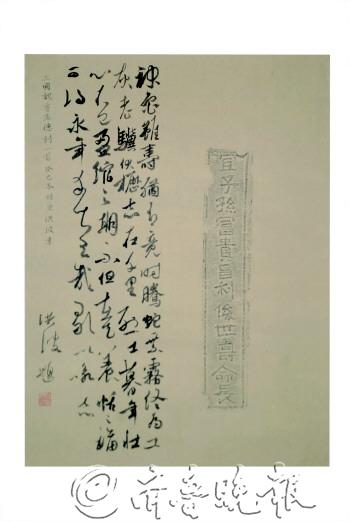 宜子孫富貴昌利後世壽命長
神龜雖壽猶有竟時騰蛇乘霧終為土
灰老驥伏櫪志在千里烈士暮年壯
心不已盈縮之期不但在天養怡之福
可得永年幸甚至哉歌以詠志
洪波題
三國魏曹孟德詩一首 癸巳冬 洪波書
齐鲁晚报